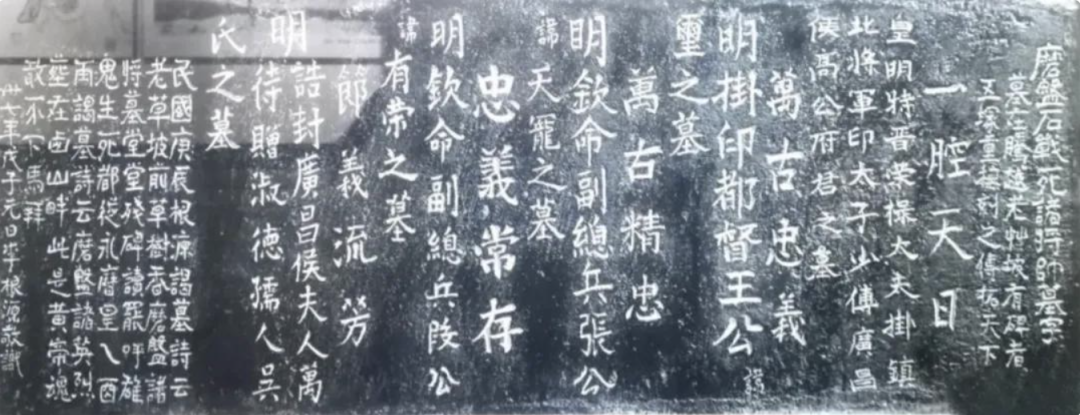 磨盤石戰死諸將帥墓字
墓在騰越老艸坡有碑者
五塚重摹刻之傳拓天下
一腔天日
皇明特晋榮祿大夫掛鎮
北將軍印太子少傅廣昌
侯高公府君之墓
萬古忠義
明掛印都督王公諱
璽之墓
萬古精忠
明欽命副總兵張公
諱天寵之墓
忠義常存
明欽命副總兵段公
諱有常之墓
節義流芳
明誥封廣昌侯夫人萬
待贈淑德孺人吳
氏之墓
民國庚辰根源謁墓詩云
老草坡前草樹香磨盤諸
將墓堂堂殘碑讀罷呼雄
鬼生死都從永曆皇乙酉
再謁墓詩云磨盤諸英烈
塟在卤山畔此是黃宗魂
敢不下馬拜
卅七年戊子元日李根源敬識